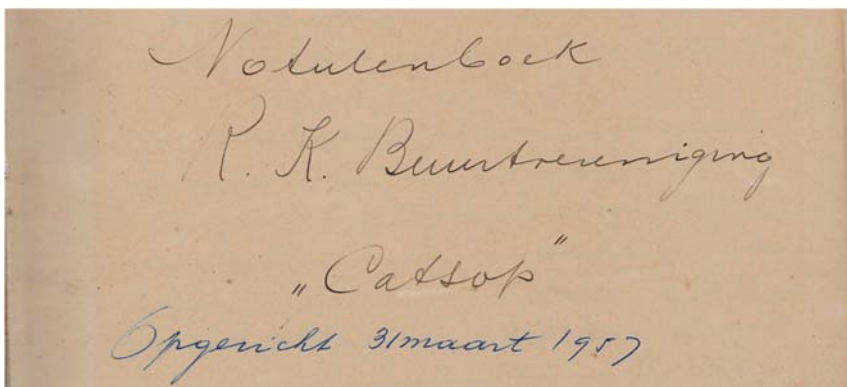 Notulenboek
R. K. Buurtvereniging
„Catsop"
Opgericht 31 maart 1957